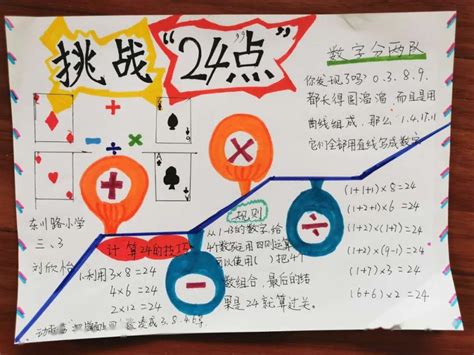 挑战“24”点
数字分两队
你发现了吗? 0.3.8.9.
都长得圆溜溜,而且是用
曲线组成,那么1.4.17.11
它们全部用直线写成数字
(1+1+1)×8=24
(1+2+1)×6=24
(1+2+2)×(9-1)=24
(1+7)×3=24
(6+6)×2=24
规则
从1-13的数字,给
4个数字运用四则运算
可以使用()把4个
数组合,最后的结
果是24就算过关。
东川路小学
三、3
刘欣怡
计算24的技巧
1.利用3×8=24
4×6=24
2×12=24
凑成3.8.4.6等